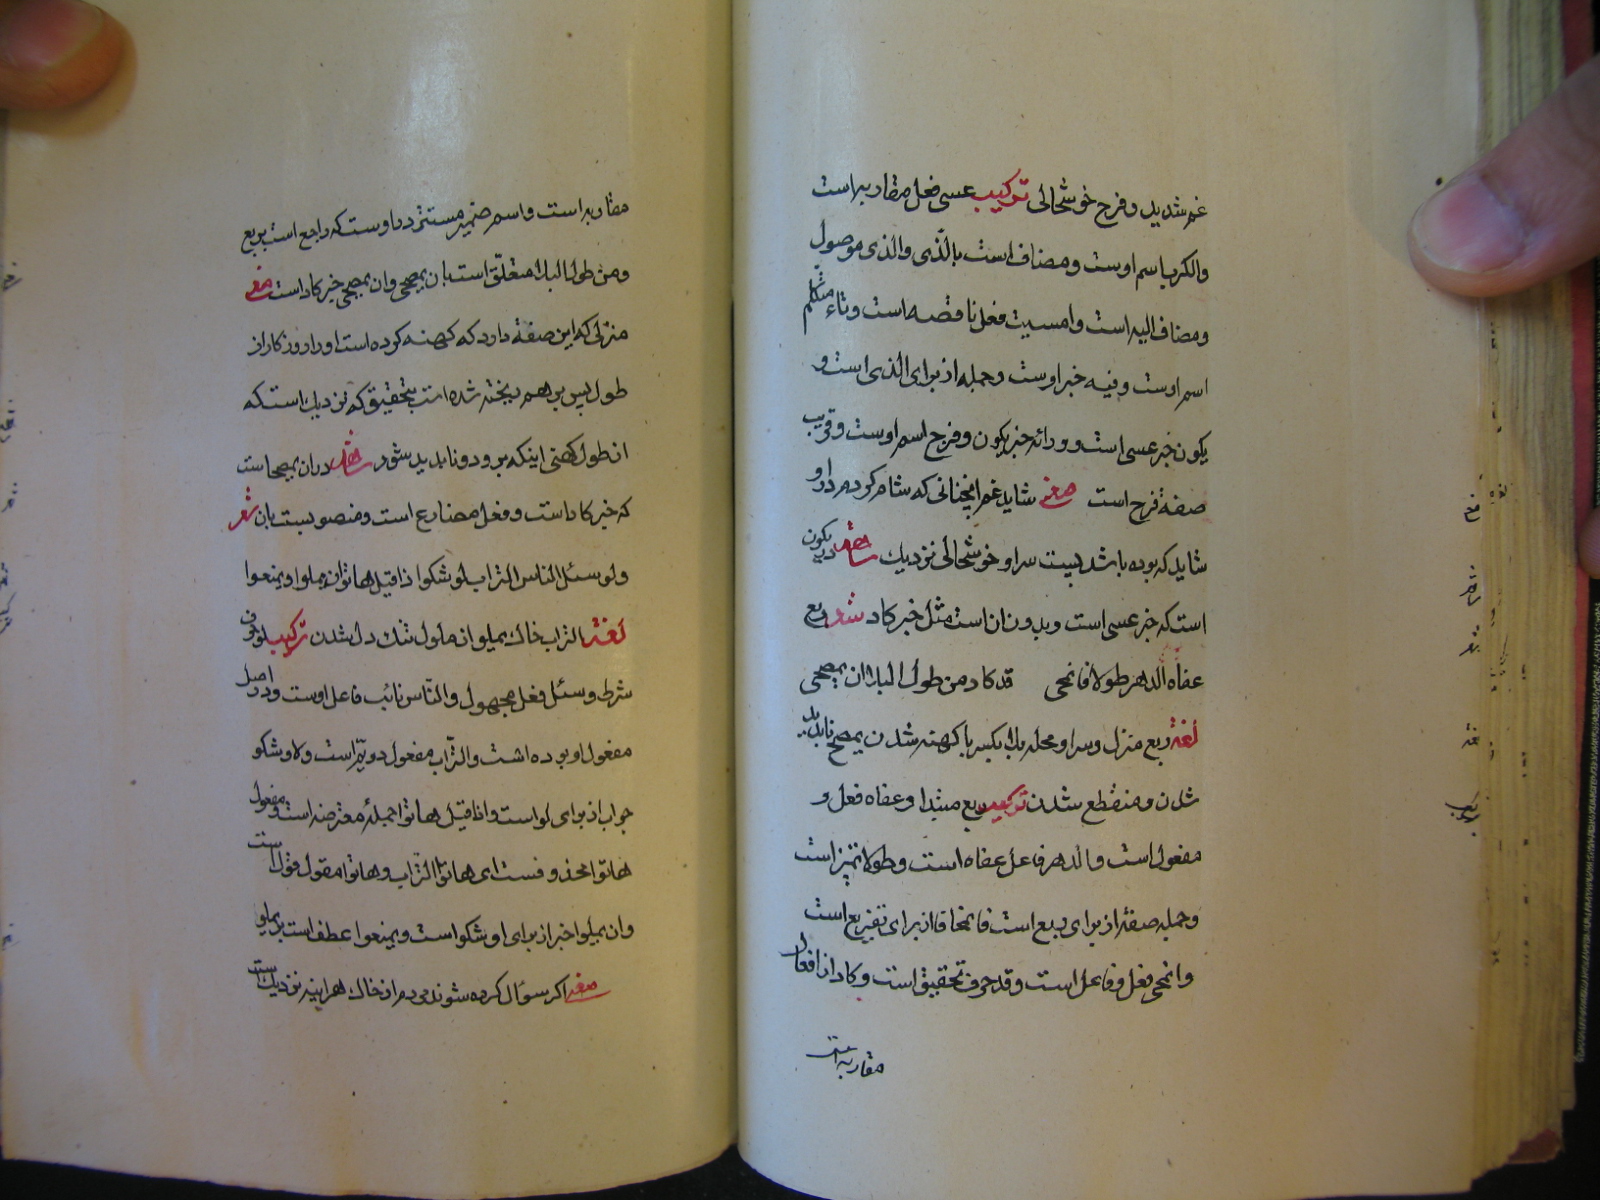 غم شدید و فرح خوشحالی ترکیب عسی فعل مقاربه است
والکرب اسم اوست و مضاف است بالّذی والذی موصول
و مضاف الیه است و امسیت فعل ناقصه است و تاء متکلم
اسم اوست و فیه خبر اوست و جمله از برای الّذی است و
یکون خبر عسی است و ورائه خبر یکون و فرح اسم اوست و قریب
صفة فرح است معنی شاید غم انچنانی که شام کردم در او
شاید که بوده باشد پست سر او خوشحالی نزدیک شاهد در یکون
است که خبر عسی است و بدون ان است مثل خبر کاد شعر ربع
عفاه الدهر طولا فانمحی قد کاد من طول البلا ان یمصحی
لغة ربع منزل و سرا و محله بلا بکسر با کهنه شدن یمصح ناپدید
شدن و منقطع شدن ترکیب ربع مبتدا و عفاه فعل و
مفعول است و الدهر فاعل عفاه است و طولا تمیز است
و جمله صفة از برای ربع است فانمحا فا از برای تفریع است
وانمحی فعل و فاعل است و قد حرف تحقیق است و کاد از افعال
مقاربه است
مقاربه است و اسم ضمیر مستتر در اوست که راجع است بربع
و من طول البلا متعلّق است بان یمصحی وان یمصحی خبر کاد است معنی
منزلی که این صفة دارد که کهنه کرده است او را روزکار از
طول پس برهم ریخته شده است بتحقیق که نزدیک است که
از طول کهنی اینکه برود و ناپدید شود شاهد در ان یمصحا است
که خبر کاد است و فعل مضارع است و منصوبست بان شعر
ولو سئل الناس التراب لو شکوا اذا قیل هاتوا ان یملوا و یمنعوا
لغة التراب خاک یملوا ملول تنک دل شدن ترکیب لو حرف
شرط و سئل فعل مجهول و النّاس نائب فاعل اوست و در اصل
مفعول او بوده است و التّراب مفعول دویّم است و لاوشکو
جواب از برای لو است و اذا قیل هاتوا جملهٔ معترضه است و مفعول
هاتوا محذوفست ای هاتوا التراب و هاتوا مقول قول است
وان یملوا خبر از برای اوشکوا است و یمنعوا عطف است بر یملو
معنی اکر سوال کرده شوند مردم از خاک هر اینه نزدیک است